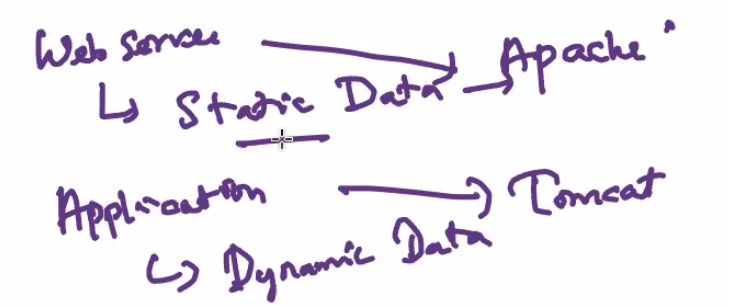 Web Server → Apache
↳ Static Data →
Application → Tomcat
↳ Dynamic Data